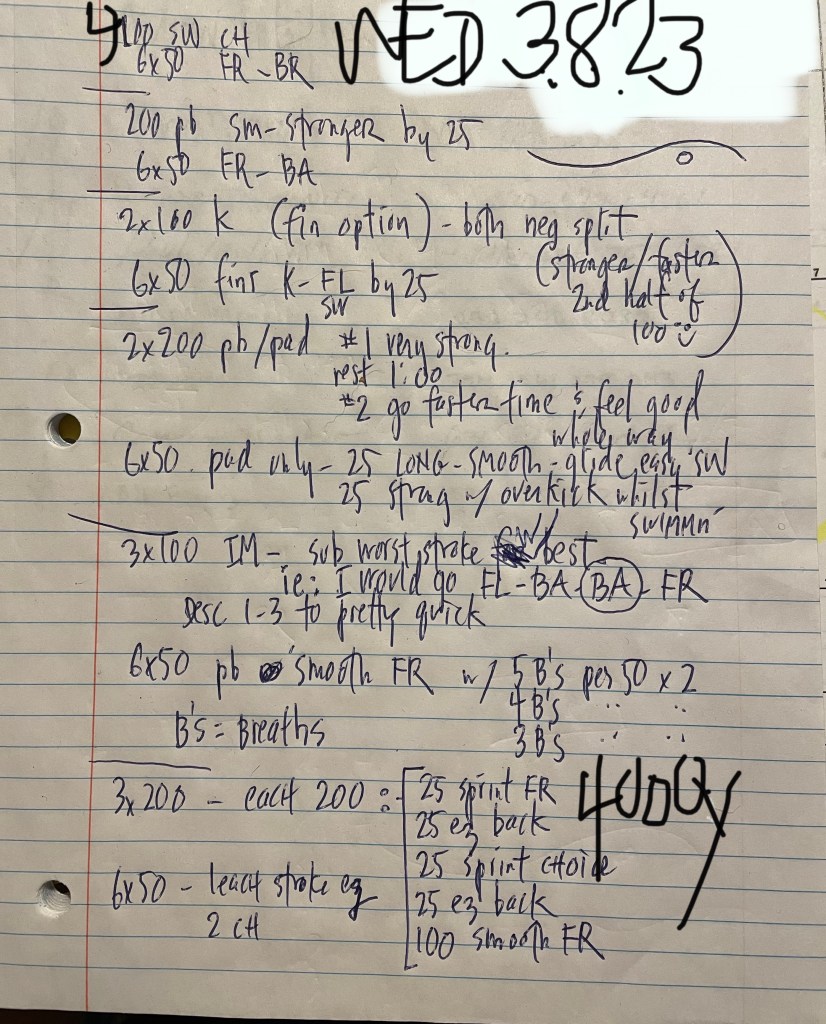 400 SW CH WED 3.8.23
6x50 FR-BR
200 pb sm-stronger by 25
6x50 FR-BA
2x100 K (fin option) - both neg split
(stronger/faster
2nd half of
100)
6x50 fins K-FL by 25
SW
2x200 pb/pad #1 very strong.
rest 1:00
#2 go faster time & feel good
whole way
6x50 pad only - 25 LONG-SMOOTH-glide, easy SW
25 strong w/ overkick whilst
swimmn'
3x100 IM - sub worst stroke w/ best
ie: I would go FL-BA-BA-FR
Desc 1-3 to pretty quick
6x50 pb smooth FR w/ 5 B's per 50 x 2
4 B's " "
B's = Breaths
3 B's " "
3x200 - each 200 : 25 sprint FR
25 ez back
25 sprint choice
25 ez back
100 smooth FR
4000y
6x50 - 1 each stroke ez
2 CH